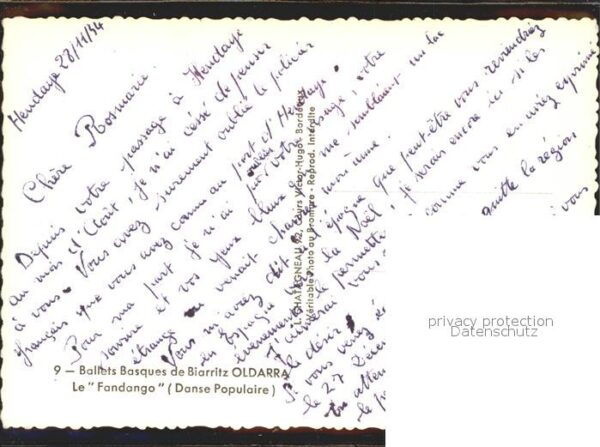 Hendaye 28/11/54
Chère Rosmarie.
Depuis votre passage à Hendaye
au mois d'Août, je n'ai cessé de penser
à vous. Vous avez surement oublié le policier
français que vous avez connu au pont d'Hendaye.
Pour ma part je n'ai pas oublié votre visage, votre
sourire et vos yeux bleus qui me semblaient un lac
étrange où venait
Vous m'avez dit que peut-être vous reviendriez
en Espagne la Noël, je serai encore ici si les
évenements le permettent comme vous en aviez exprimé
le désir. J'aimerai vous la région
Si vous venez vous
le 27
en atten
le
L. CHATAGNEAU 92, Cours Victor-Hugo - Bordeaux
Véritable Photo au Bromure - Reprod. Interdite
9 — Ballets Basques de Biarritz OLDARRA
Le "Fandango" (Danse Populaire)
privacy protection
Datenschutz